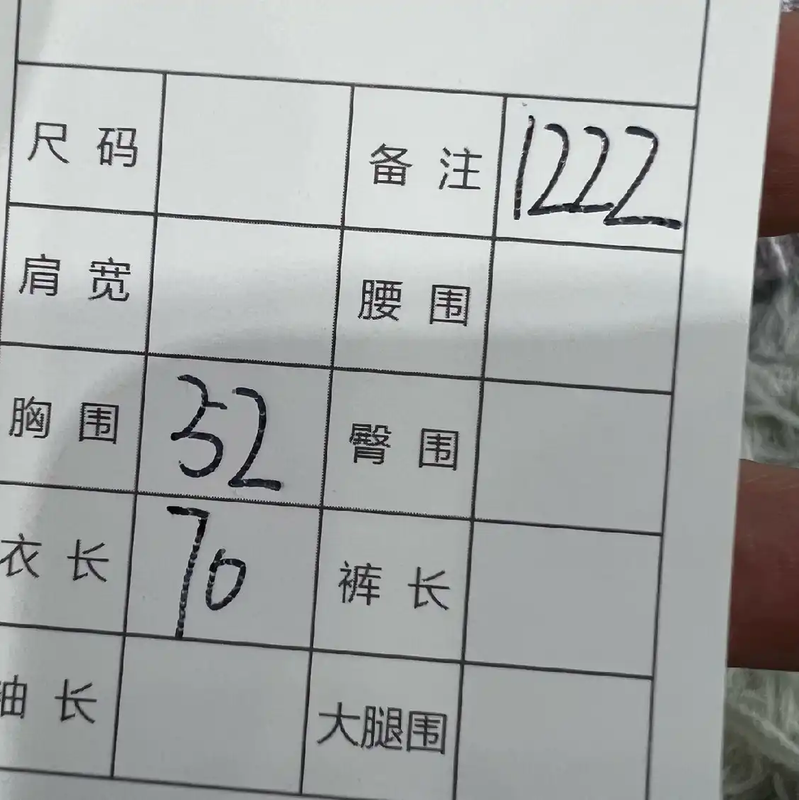 尺码 备注 1222
肩宽 腰围
胸围 52 臀围
衣长 70 裤长
袖长 大腿围